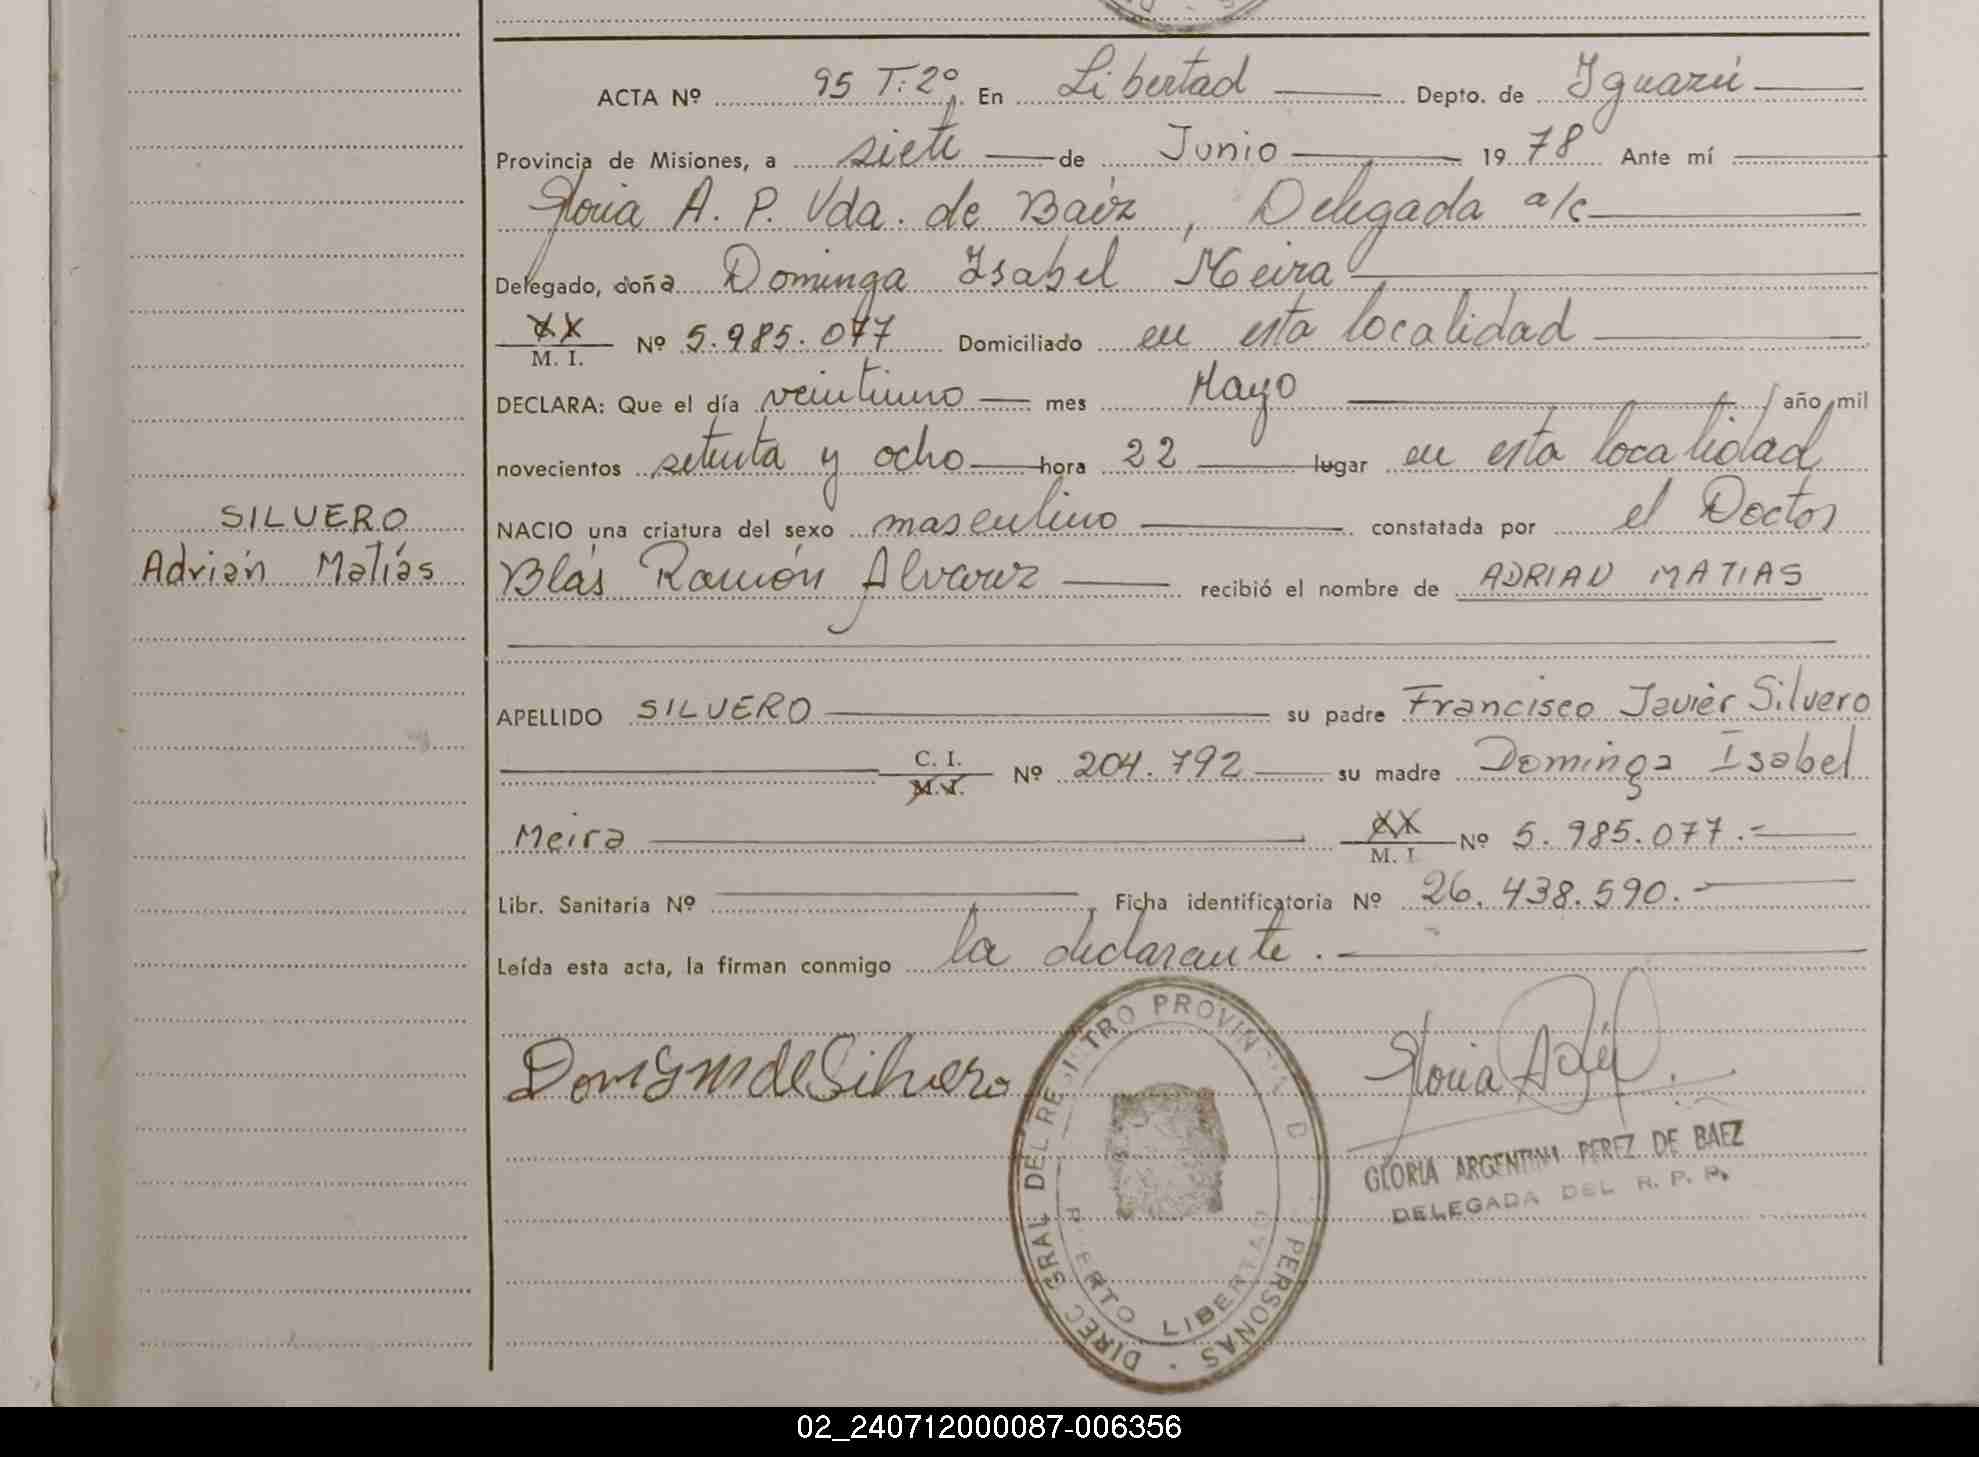 ACTA Nº 95 T: 2º En Libertad Depto. de Iguazú
Provincia de Misiones, a siete de Junio 1978 Ante mí
Gloria A. P. Vda. de Baéz, Delegada a/c
Delegado, doña Dominga Isabel Meira
XX M. I. Nº 5.985.077 Domiciliado en esta localidad
DECLARA: Que el día veintiuno mes Mayo año mil
novecientos setenta y ocho hora 22 lugar en esta localidad
SILVERO
NACIO una criatura del sexo masculino constatada por el Doctor
Adrián Matías
Blás Ramón Alvarez recibió el nombre de ADRIAN MATIAS
APELLIDO SILVERO su padre Francisco Javiér Silvero
C. I. M. I. Nº 204.792 su madre Dominga Isabel
Meira XX M. I. Nº 5.985.077.-
Libr. Sanitaria Nº Ficha identificatoria Nº 26.438.590.-
Leída esta acta, la firman conmigo la declarante.
de Silvero
Gloria
GLORIA ARGENTINA PEREZ DE BAEZ
DELEGADA DEL R. P. P.
DIREC. GRAL DEL REGISTRO PROVINCIAL D PERSONAS
PUERTO LIBERTAD
02_240712000087-006356